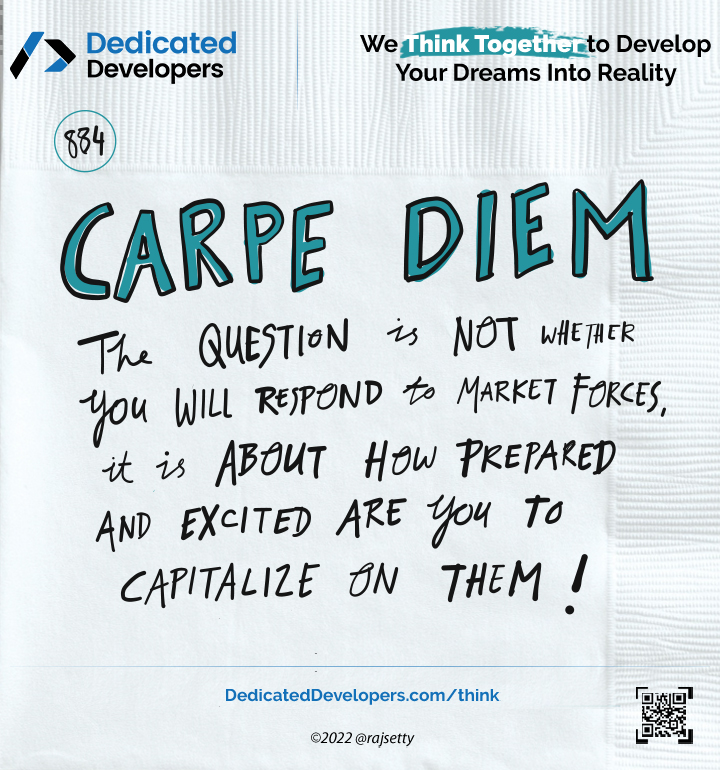 Dedicated
Developers
We Think Together to Develop
Your Dreams Into Reality
884
CARPE DIEM
The QUESTION is NOT WHETHER
you WILL RESPOND to MARKET FORCES,
it is ABOUT HOW PREPARED
AND EXCITED ARE you TO
CAPITALIZE ON THEM!
DedicatedDevelopers.com/think
©2022 @rajsetty